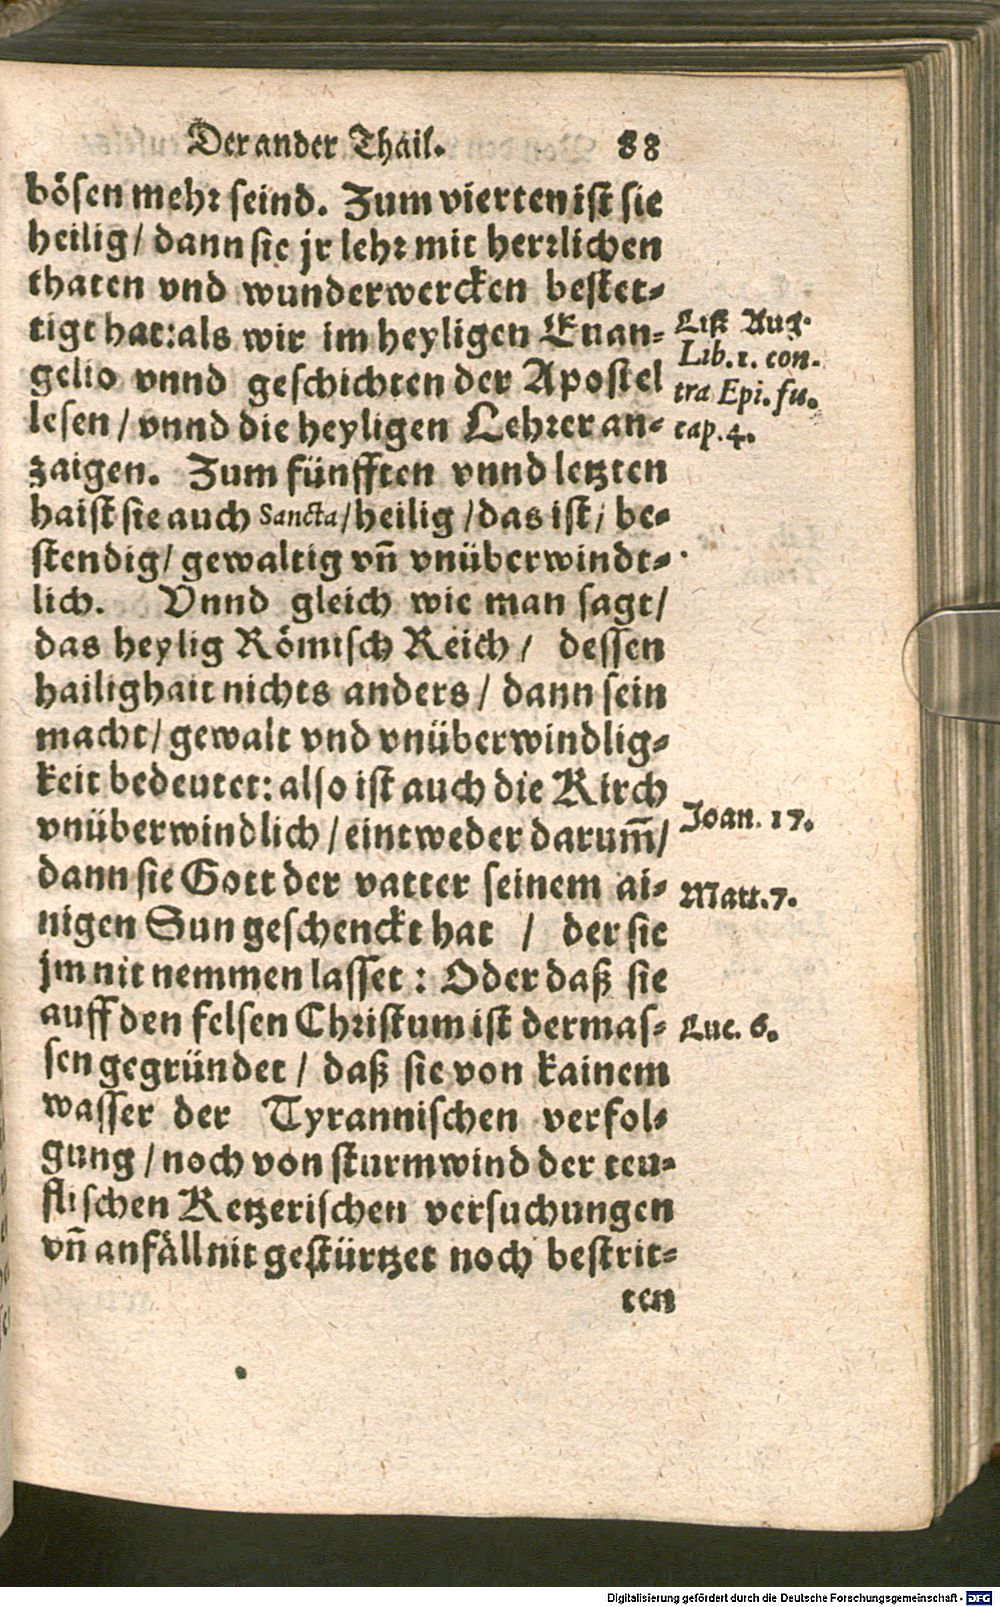 Der ander Thail. 88
bösen mehr seind. Zum vierten ist sie
heilig / dann sie jr lehr mit herrlichen
thaten vnd wunderwercken bestet-
tigt hat: als wir im heyligen Euan-
gelio vnnd geschichten der Apostel
lesen / vnnd die heyligen Lehrer an-
zaigen. Zum fünfften vnnd letzten
haist sie auch Sancta / heilig / das ist / be-
stendig / gewaltig vñ vnüberwindt-
lich. Vnnd gleich wie man sagt /
das heylig Römisch Reich / dessen
hailighait nichts anders / dann sein
macht / gewalt vnd vnüberwindlig-
keit bedeutet: also ist auch die Kirch
vnüberwindlich / eintweder darum̃ /
dann sie Gott der vatter seinem ai-
nigen Sun geschenckt hat / der sie
jm nit nemmen lasset : Oder daß sie
auff den felsen Christum ist dermas-
sen gegründet / daß sie von kainem
wasser der Tyrannischen verfol-
gung / noch von sturmwind der teu-
flischen Ketzerischen versuchungen
vñ anfäll nit gestürtzet noch bestrit-
ten
Liß Aug.
Lib. 1. con-
tra Epi. fu.
cap. 4.
Joan. 17.
Matt. 7.
Luc. 6.
Digitalisierung gefördert durch die Deutsche Forschungsgemeinschaft - DFG